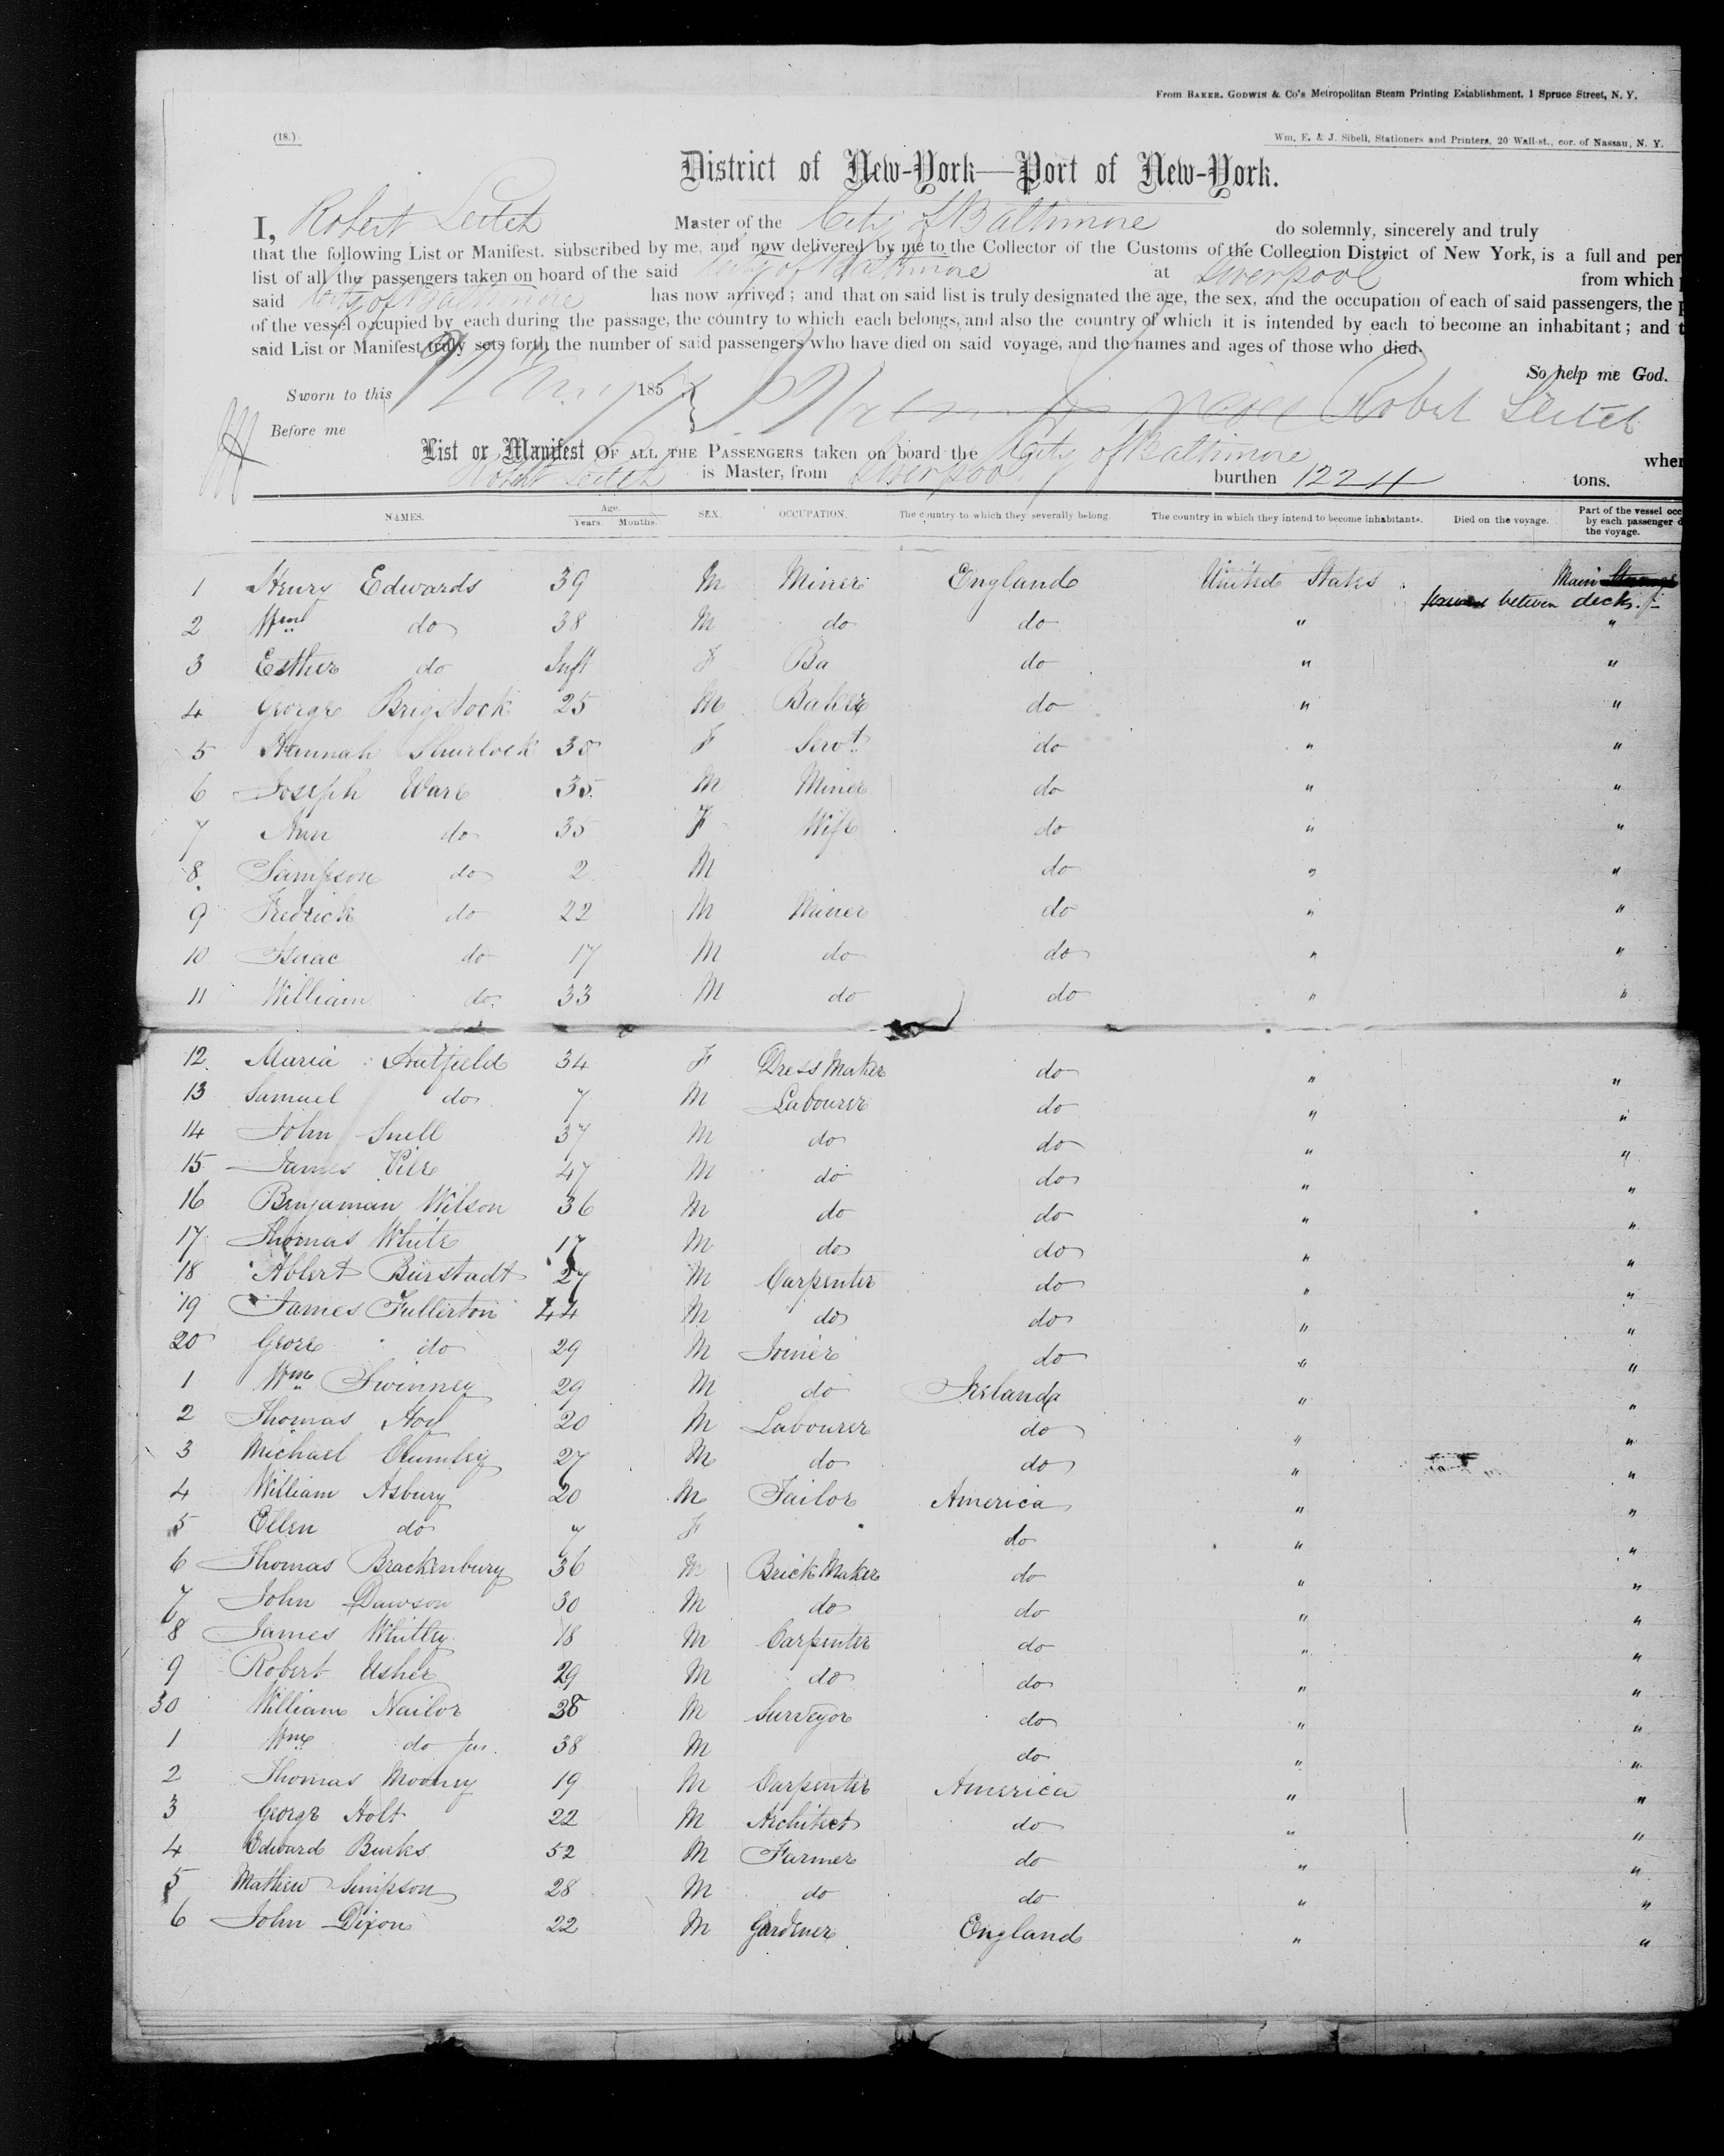 From BAKER, GODWIN & Co's Metropolitan Steam Printing Establishment, 1 Spruce Street, N. Y.
(18.)
Wm. E. & J. Sibell, Stationers and Printers, 20 Wall-st., cor. of Nassau, N. Y.
District of New-York—Port of New-York.
I, Robert Leitch Master of the City of Baltimore do solemnly, sincerely and truly
that the following List or Manifest, subscribed by me, and now delivered by me to the Collector of the Customs of the Collection District of New York, is a full and per
list of all the passengers taken on board of the said City of Baltimore at Liverpool from which
said City of Baltimore has now arrived; and that on said list is truly designated the age, the sex, and the occupation of each of said passengers, the p
of the vessel occupied by each during the passage, the country to which each belongs, and also the country of which it is intended by each to become an inhabitant; and t
said List or Manifest truly sets forth the number of said passengers who have died on said voyage, and the names and ages of those who died.
So help me God.
Sworn to this 185
Robert Leitch
Before me
List or Manifest OF ALL THE PASSENGERS taken on board the City of Baltimore wher
Robert Leitch is Master, from Liverpool burthen 1224 tons.
NAMES. Age. Years. Months. SEX. OCCUPATION. The country to which they severally belong. The country in which they intend to become inhabitants. Died on the voyage. Part of the vessel occ by each passenger d the voyage.
1 Henry Edwards 39 M Miner England United States Main
between decks
2 Wm do 38 M do do " "
3 Esther do Inft F Ba do " "
4 George Brigstock 25 M Baker do " "
5 Hannah Shurlock 35 F Servt do " "
6 Joseph Ware 35 M Miner do " "
7 Ann do 35 F Wife do " "
8 Sampson do 2 M do " "
9 Fredrick do 22 M Miner do " "
10 Isaac do 17 M do do " "
11 William do 33 M do do " "
12 Maria Hatfield 34 F Dress Maker do " "
13 Samuel do 7 M Labourer do " "
14 John Snell 37 M do do " "
15 James 47 M do do " "
16 Benjaman Wilson 36 M do do " "
17 Thomas White 17 M do do " "
18 Ablert Burstadt 27 M Carpenter do " "
19 James Fullerton 44 M do do " "
20 Geore do 29 M Joiner do " "
1 Wm Swinney 29 M do Ireland " "
2 Thomas 20 M Labourer do " "
3 Michael 27 M do do " "
4 William Asbury 20 M Tailor America " "
5 Ellen do 7 F do " "
6 Thomas Brackenbury 36 M Brick Maker do " "
7 John Dawson 30 M do do " "
8 James Whitley 18 M Carpenter do " "
9 Robert Usher 29 M do do " "
30 William Nailor 38 M Surveyor do " "
1 Wm do Jun. 38 M do " "
2 Thomas Mooney 19 M Carpenter America " "
3 George Holt 22 M Architect do " "
4 Edward Burks 52 M Farmer do " "
5 Mathew Simpson 28 M do do " "
6 John Dixon 22 M Gardener England " "